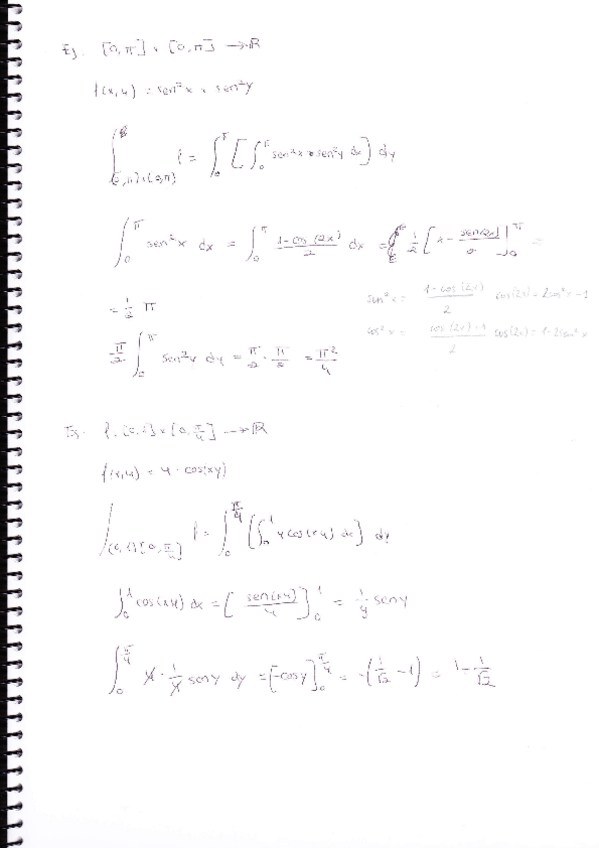 Ej. [0,π] × [0,π] → ℝ
f(x,y) = sen²x · sen²y
∫[0,π]×[0,π] f = ∫₀^π [∫₀^π sen²x · sen²y dx] dy
∫₀^π sen²x dx = ∫₀^π (1-cos(2x))/2 dx = 1/2 [x - sen(2x)/2]₀^π =
= 1/2 π
sen²x = (1-cos(2x))/2 cos(2x) = 2cos²x - 1
cos²x = (cos(2x)+1)/2 cos(2x) = 1-2sen²x
π/2 ∫₀^π sen²y dy = π/2 · π/2 = π²/4
Ej. f: [0,1] × [0,π/4] → ℝ
f(x,y) = y · cos(xy)
∫[0,1]×[0,π/4] f = ∫₀^(π/4) [∫₀^1 y cos(xy) dx] dy
∫₀^1 cos(xy) dx = [sen(xy)/y]₀^1 = 1/y sen y
∫₀^(π/4) y · 1/y sen y dy = [-cos y]₀^(π/4) = -(1/√2 - 1) = 1 - 1/√2